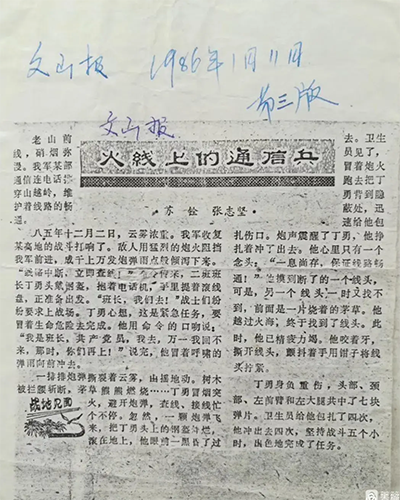 文山报 1986年1月11日
第三版
文山报
火线上的通信兵
苏 张志坚
老山前
线，硝烟弥
漫。我军某部
通信连电话排
穿山越岭，维
护着线路的畅
通。
八五年十二月二日，云雾浓重。我军收复
某高地的战斗打响了。敌人用猛烈的炮火阻挡
我军前进，成千上万发炮弹雨点般倾泻下来。
“线路中断，立即查线！”二班班
长丁勇头戴钢盔，抱着电话机，手里提着滚线
盘，正准备出发。“班长，我们去！”战士们纷
纷要求上战场。丁勇心想，这是紧急任务，要
冒着生命危险去完成。他用命令的口吻说：
“我是班长，共产党员，我去，万一我回不
来，那时，你们再上！”说完，他冒着呼啸的
弹雨向前冲去。
一排排炮弹撕裂着云雾，山摇地动。树木
被拦腰斩断，茅草熊熊燃烧……丁勇冒烟突
火，避开炮弹，查线、接线忙
个不停。忽然，一颗炮弹飞
来，把丁勇头上的钢盔炸烂，
滚在地上，他眼前一黑昏了过
战地见闻
去。卫生
员见了，
冒着炮火
跑去把丁
勇背到隐
蔽处，迅
速给他包
扎伤口。炮声震醒了丁勇，他挣
扎着冲了出去。他心里只有一个
念头：“一息尚存，保证线路畅
通！”他摸到断了的一个线头，
可是，另一个线头一时又找不
到，前面是一片烧着的茅草。他
越过火海，终于找到了线头。此
时，他已精疲力竭。他咬着牙，
撕开线头，颤抖着手用钳子将线
头拧紧。
丁勇身负重伤，头部、颈
部、左前臂和左大腿共中了七块
弹片。卫生员给他包扎了四次，
他冲出去四次，坚持战斗五个小
时，出色地完成了任务。